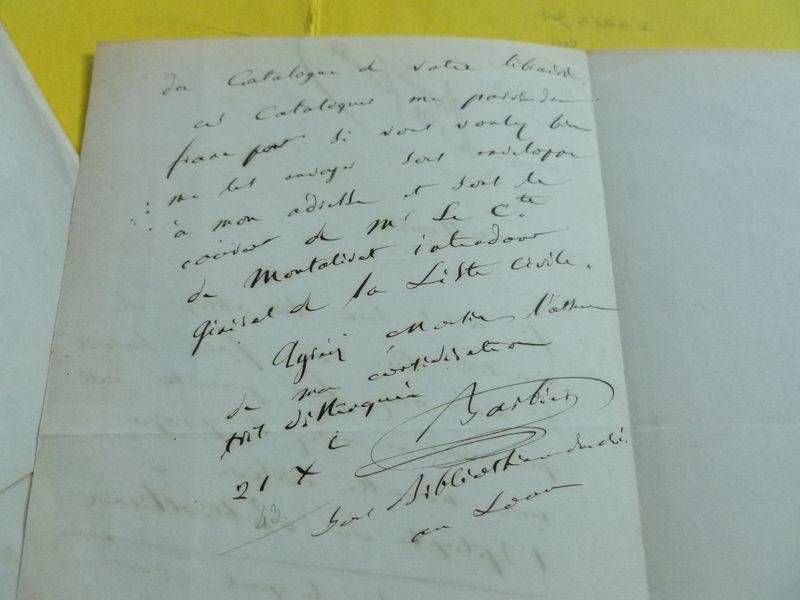 du Catalogue de votre librairie.
ces Catalogues me parviendront
franc port si vous voulez bien
me les envoyer sous enveloppe
à mon adresse et sous le
couvert de Mr Le Cte
de Montalivet intendant
général de la Liste Civile.
Agréez Monsieur l'assurance
de ma considération
très distinguée
Barbier
21 X
43
Bibliothécaire du roi
au Louvre